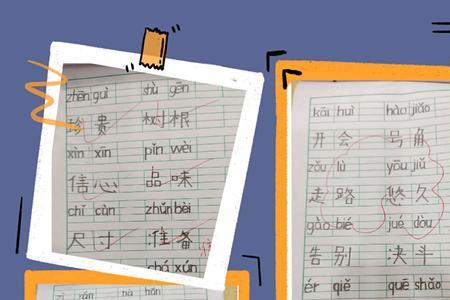 zhēn guì shù gēn
珍贵 树根
xìn xīn pǐn wèi
信心 品味
chǐ cùn zhǔn bèi
尺寸 准备
chá xún
kāi huì hào jiǎo
开会 号角
zǒu lù yōu jiǔ
走路 悠久
gào bié jué dòu
告别 决斗
ér qiě quē shǎo